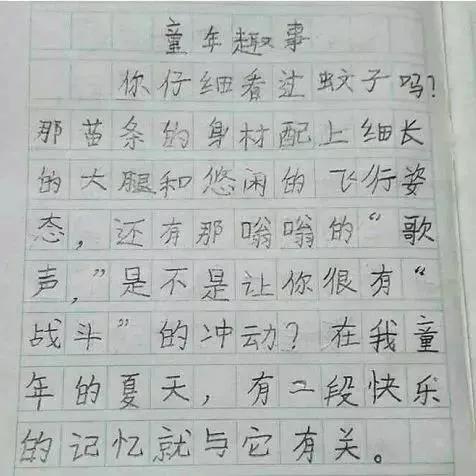 童年趣事
你仔细看过蚊子吗？
那苗条的身材配上细长
的大腿和悠闲的飞行姿
态，还有那嗡嗡的“歌
声，”是不是让你很有“
战斗”的冲动？在我童
年的夏天，有二段快乐
的记忆就与它有关。